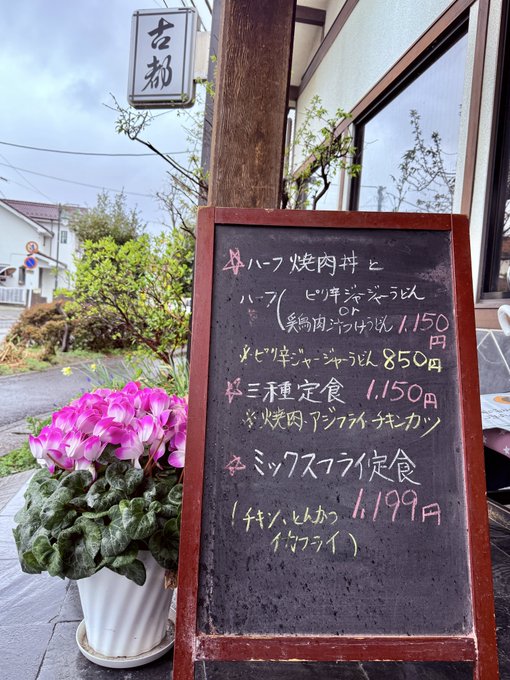 古都
ハーフ焼肉丼と
ハーフ(ピリ辛ジャージャーうどん
or
鶏肉汁つけうどん) 1,150円
※ピリ辛ジャージャーうどん 850円
三種定食 1,150円
※焼肉・アジフライ・チキンカツ
ミックスフライ定食
1,199円
(チキン、とんかつ
イカフライ)